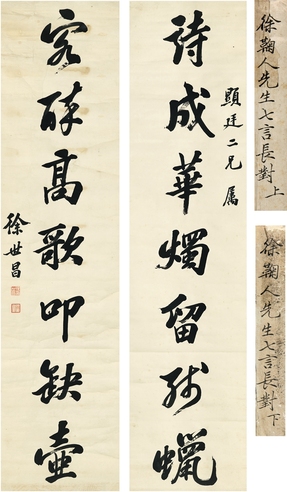 詩成華燭留殘蠟
顕廷二兄属
客醉高歌叩缺壺
徐世昌
徐鞠人先生七言長對上
徐鞠人先生七言長對下